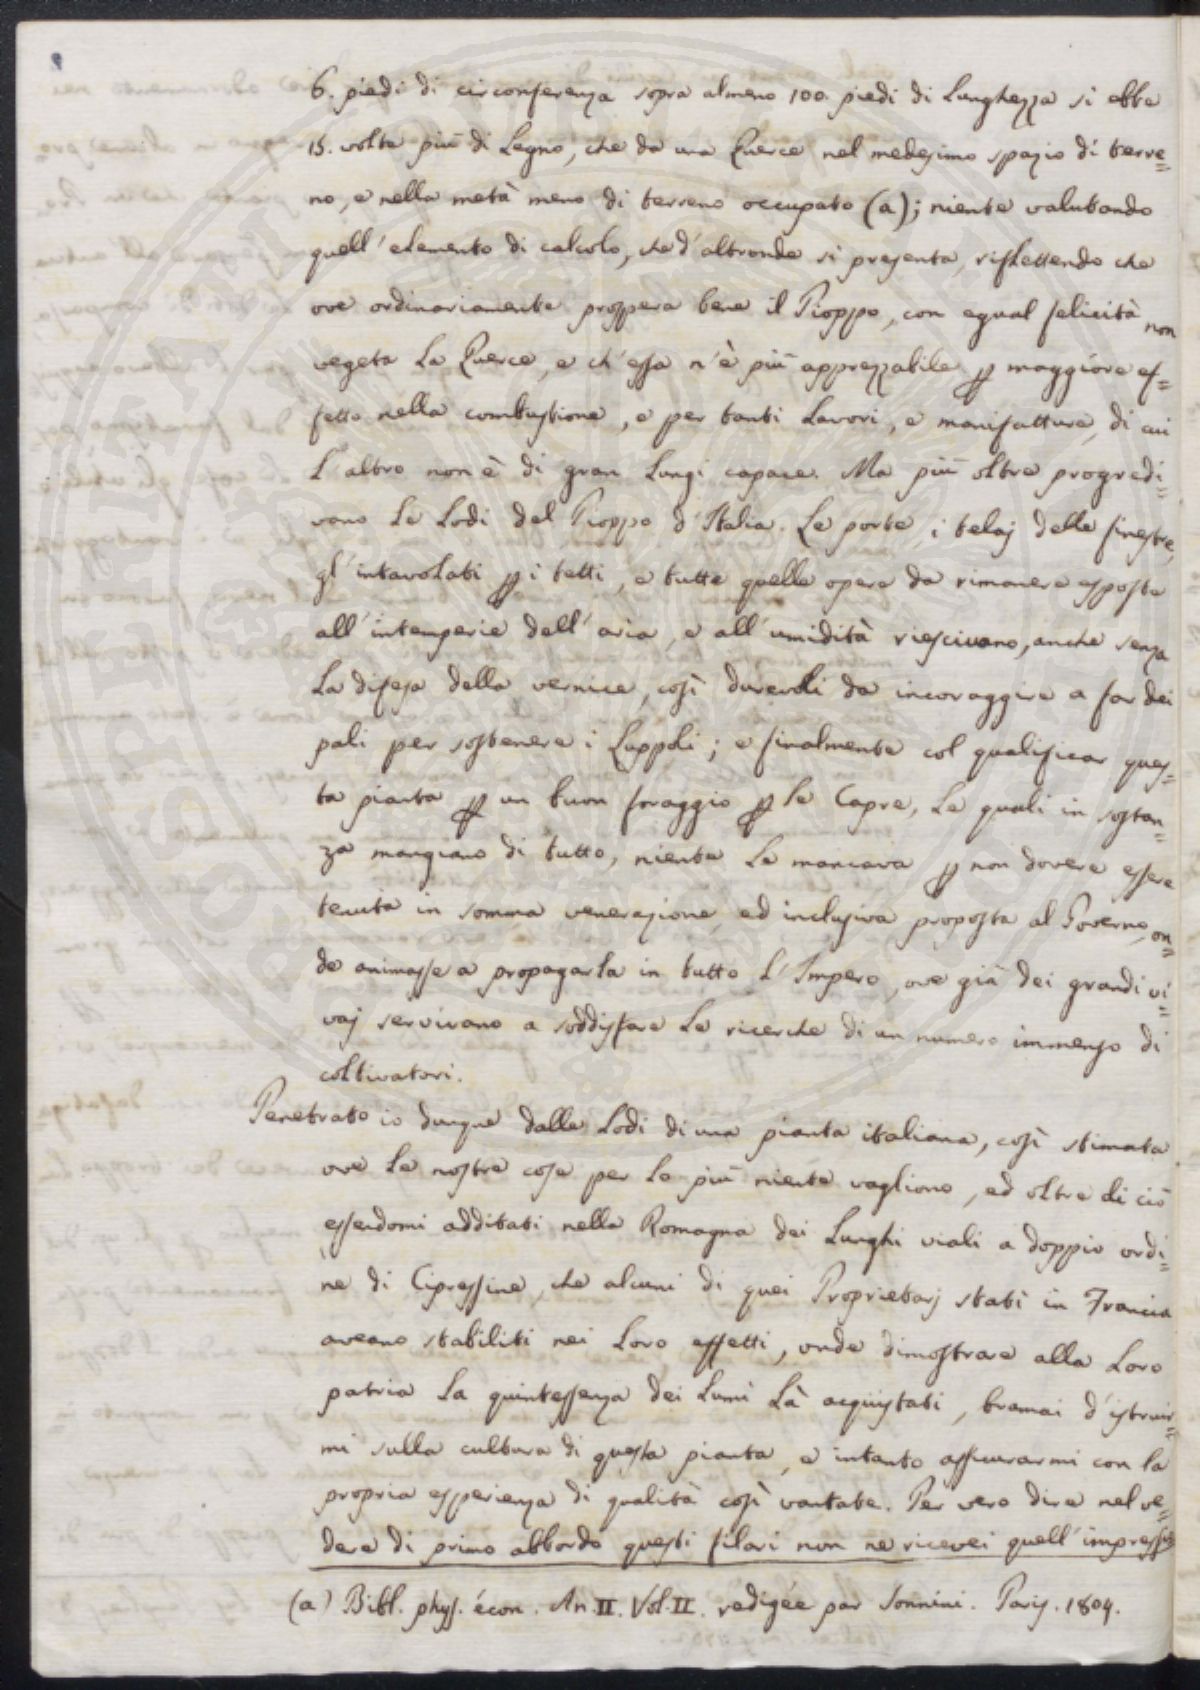 6. piedi di circonferenza sopra almeno 100. piedi di Lunghezza si ebbe
15. volte più di Legno, che da una Querce nel medesimo spazio di terre=
no, e nella metà meno di terreno occupato (a); niente valutando
quell'elemento di calcolo, che d'altronde si presenta, riflettendo che
ove ordinariamente prospera bene il Pioppo, con egual felicità non
vegeta la Querce, e ch'essa n'è più apprezzabile p maggiore ef=
fetto nella combustione, e per tanti Lavori, e manifatture, di cui
L'altro non è di gran Lungi capace. Ma più oltre progredi=
vano Le Lodi del Pioppo d'Italia. Le porte, i telaj delle finestre,
gl'intavolati p i tetti, e tutte quelle opere da rimanere esposte
all'intemperie dell'aria, e all'umidità riescivano, anche senza
La difesa della vernice, così durevoli da incoraggire a far dei
pali per sostenere i Luppoli; e finalmente col qualificar ques=
ta pianta p un buon foraggio p le Capre, Le quali in sostan=
za mangiano di tutto, niente Le mancava p non dovere essere
tenuta in somma venerazione, ed inclusiva proposta al Governo, on=
de animasse a propagarla in tutto L'Impero, ove già dei grandi vi=
vaj servivano a soddisfare Le ricerche di un numero immenso di
coltivatori.
Penetrato io dunque dalle Lodi di una pianta italiana, così stimata
ove Le nostre cose per lo più niente vagliono, ed oltre di ciò
essendomi additati nella Romagna dei Lunghi viali a doppio ordi=
ne di Cipressine, che alcuni di quei Proprietarj stati in Francia
aveano stabiliti nei Loro effetti, onde dimostrare alla Loro
patria La quintessenza dei Lumi Là acquistati, bramai d'istruir=
mi sulla cultura di questa pianta, e intanto assicurarmi con la
propria esperienza di qualità così vantate. Per vero dire nel ve=
dere di primo abbordo questi filari non ne ricevei quell'impres
(a) Bibl. phys. écon. An. II. Vol. II. redigée par Sonnini. Paris. 1804.